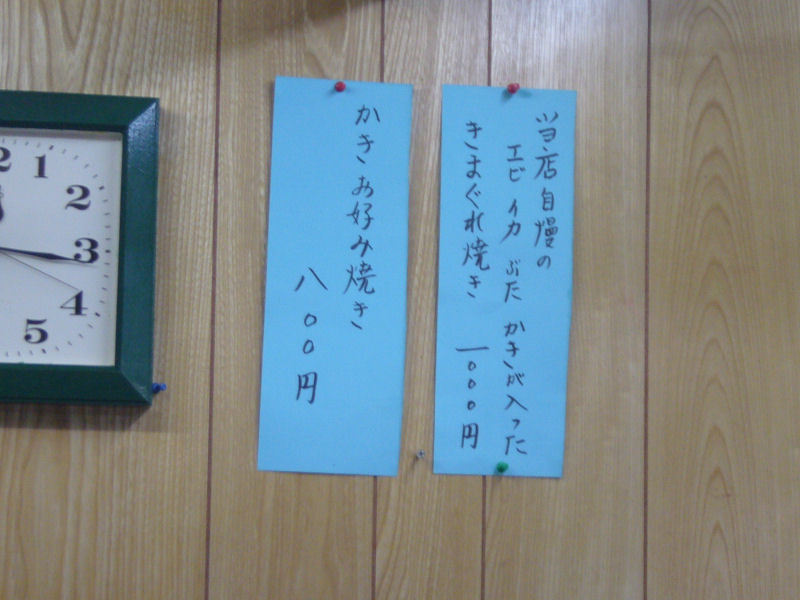 当店自慢の
エビ イカ ぶた かきが入った
きまぐれ焼き 一〇〇〇円
かきお好み焼き
八〇〇円
2
1
2
3
4
5